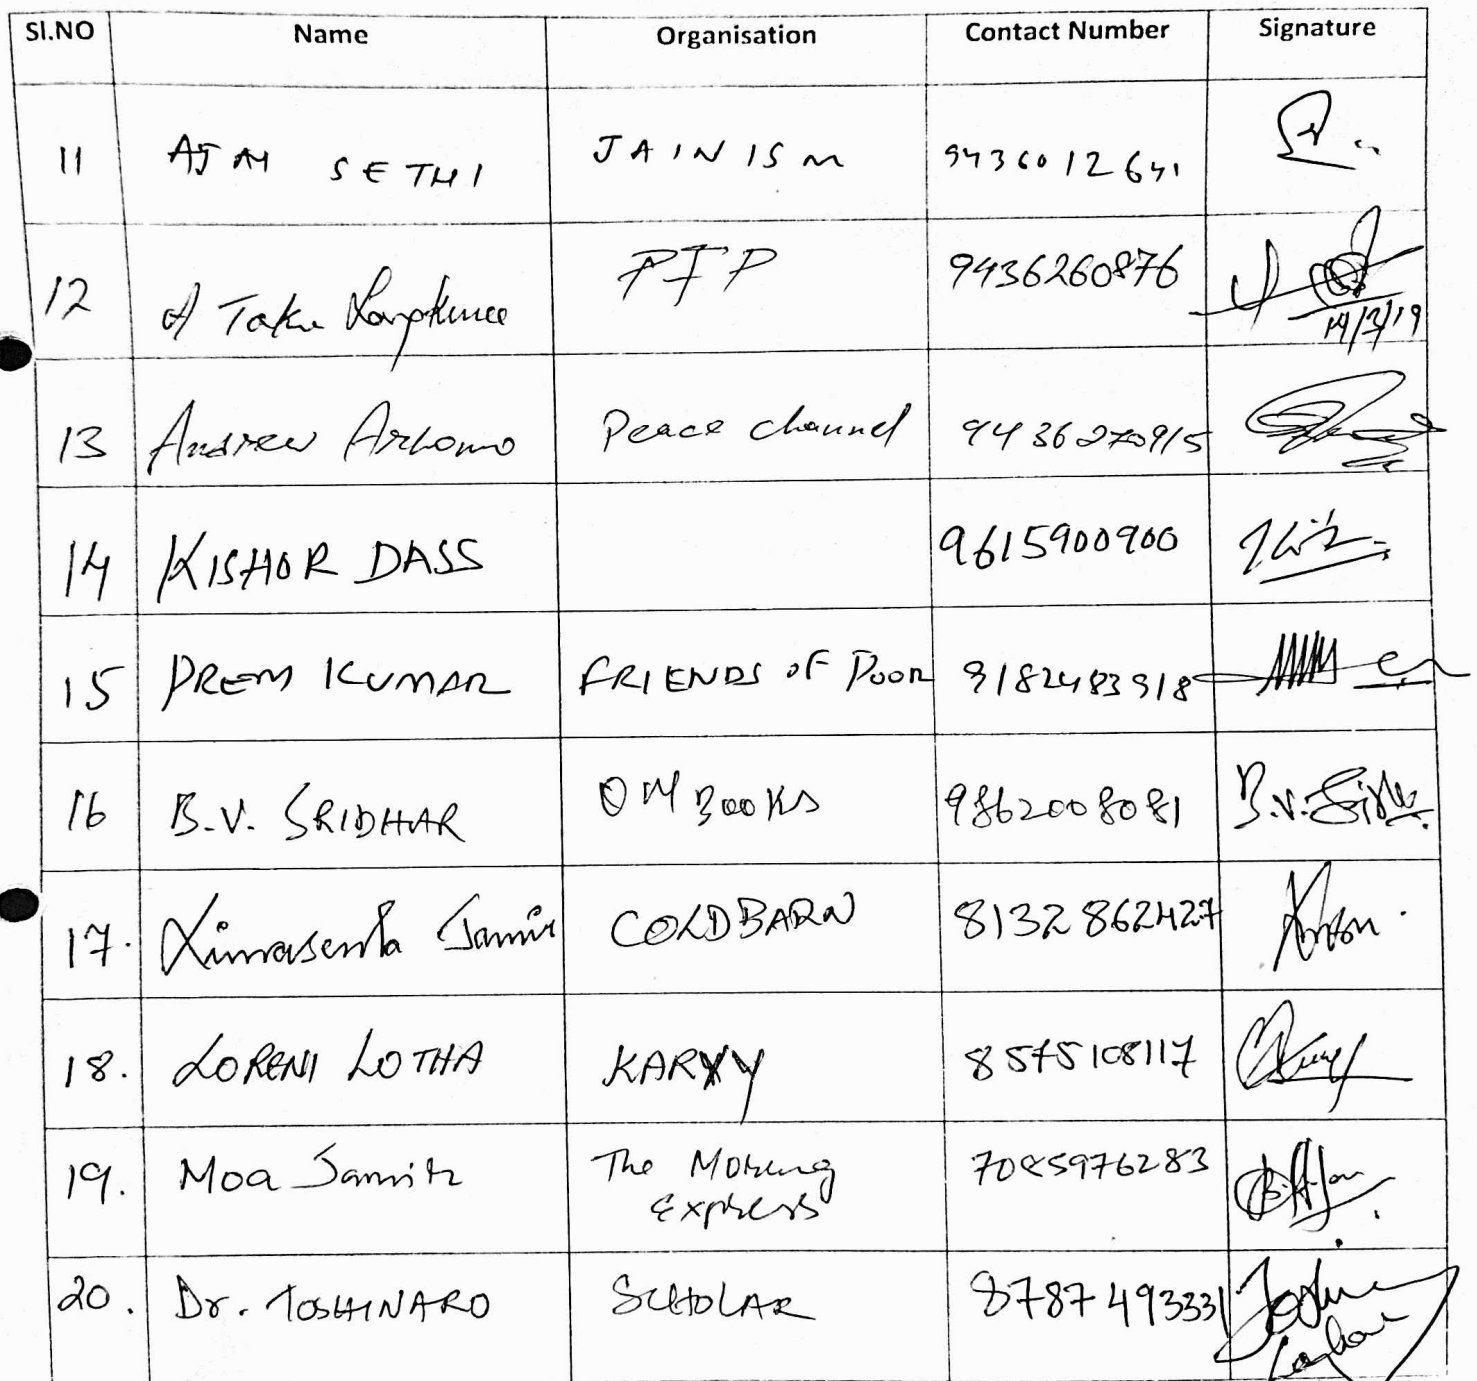 Sl.NO Name Organisation Contact Number Signature
11 AJAY SETHI JAINISM 9436012641
12 Taku PFP 9436260876
14/3/19
13 Andrew Arhomo Peace channel 9436270915
14 KISHOR DASS 9615900900
15 PREM KUMAR FRIENDS OF POOR 9182483918
16 B.V. SRIDHAR OM BOOKS 9862008081 B.V.
17. Limasenla Jamir COLDBARN 8132862427
18. LORENI LOTHA KARVY 8575108117
19. Moa Jamir The Morung 7085976283
Express
20. Dr. TOSHINARO SCHOLAR 8787493331